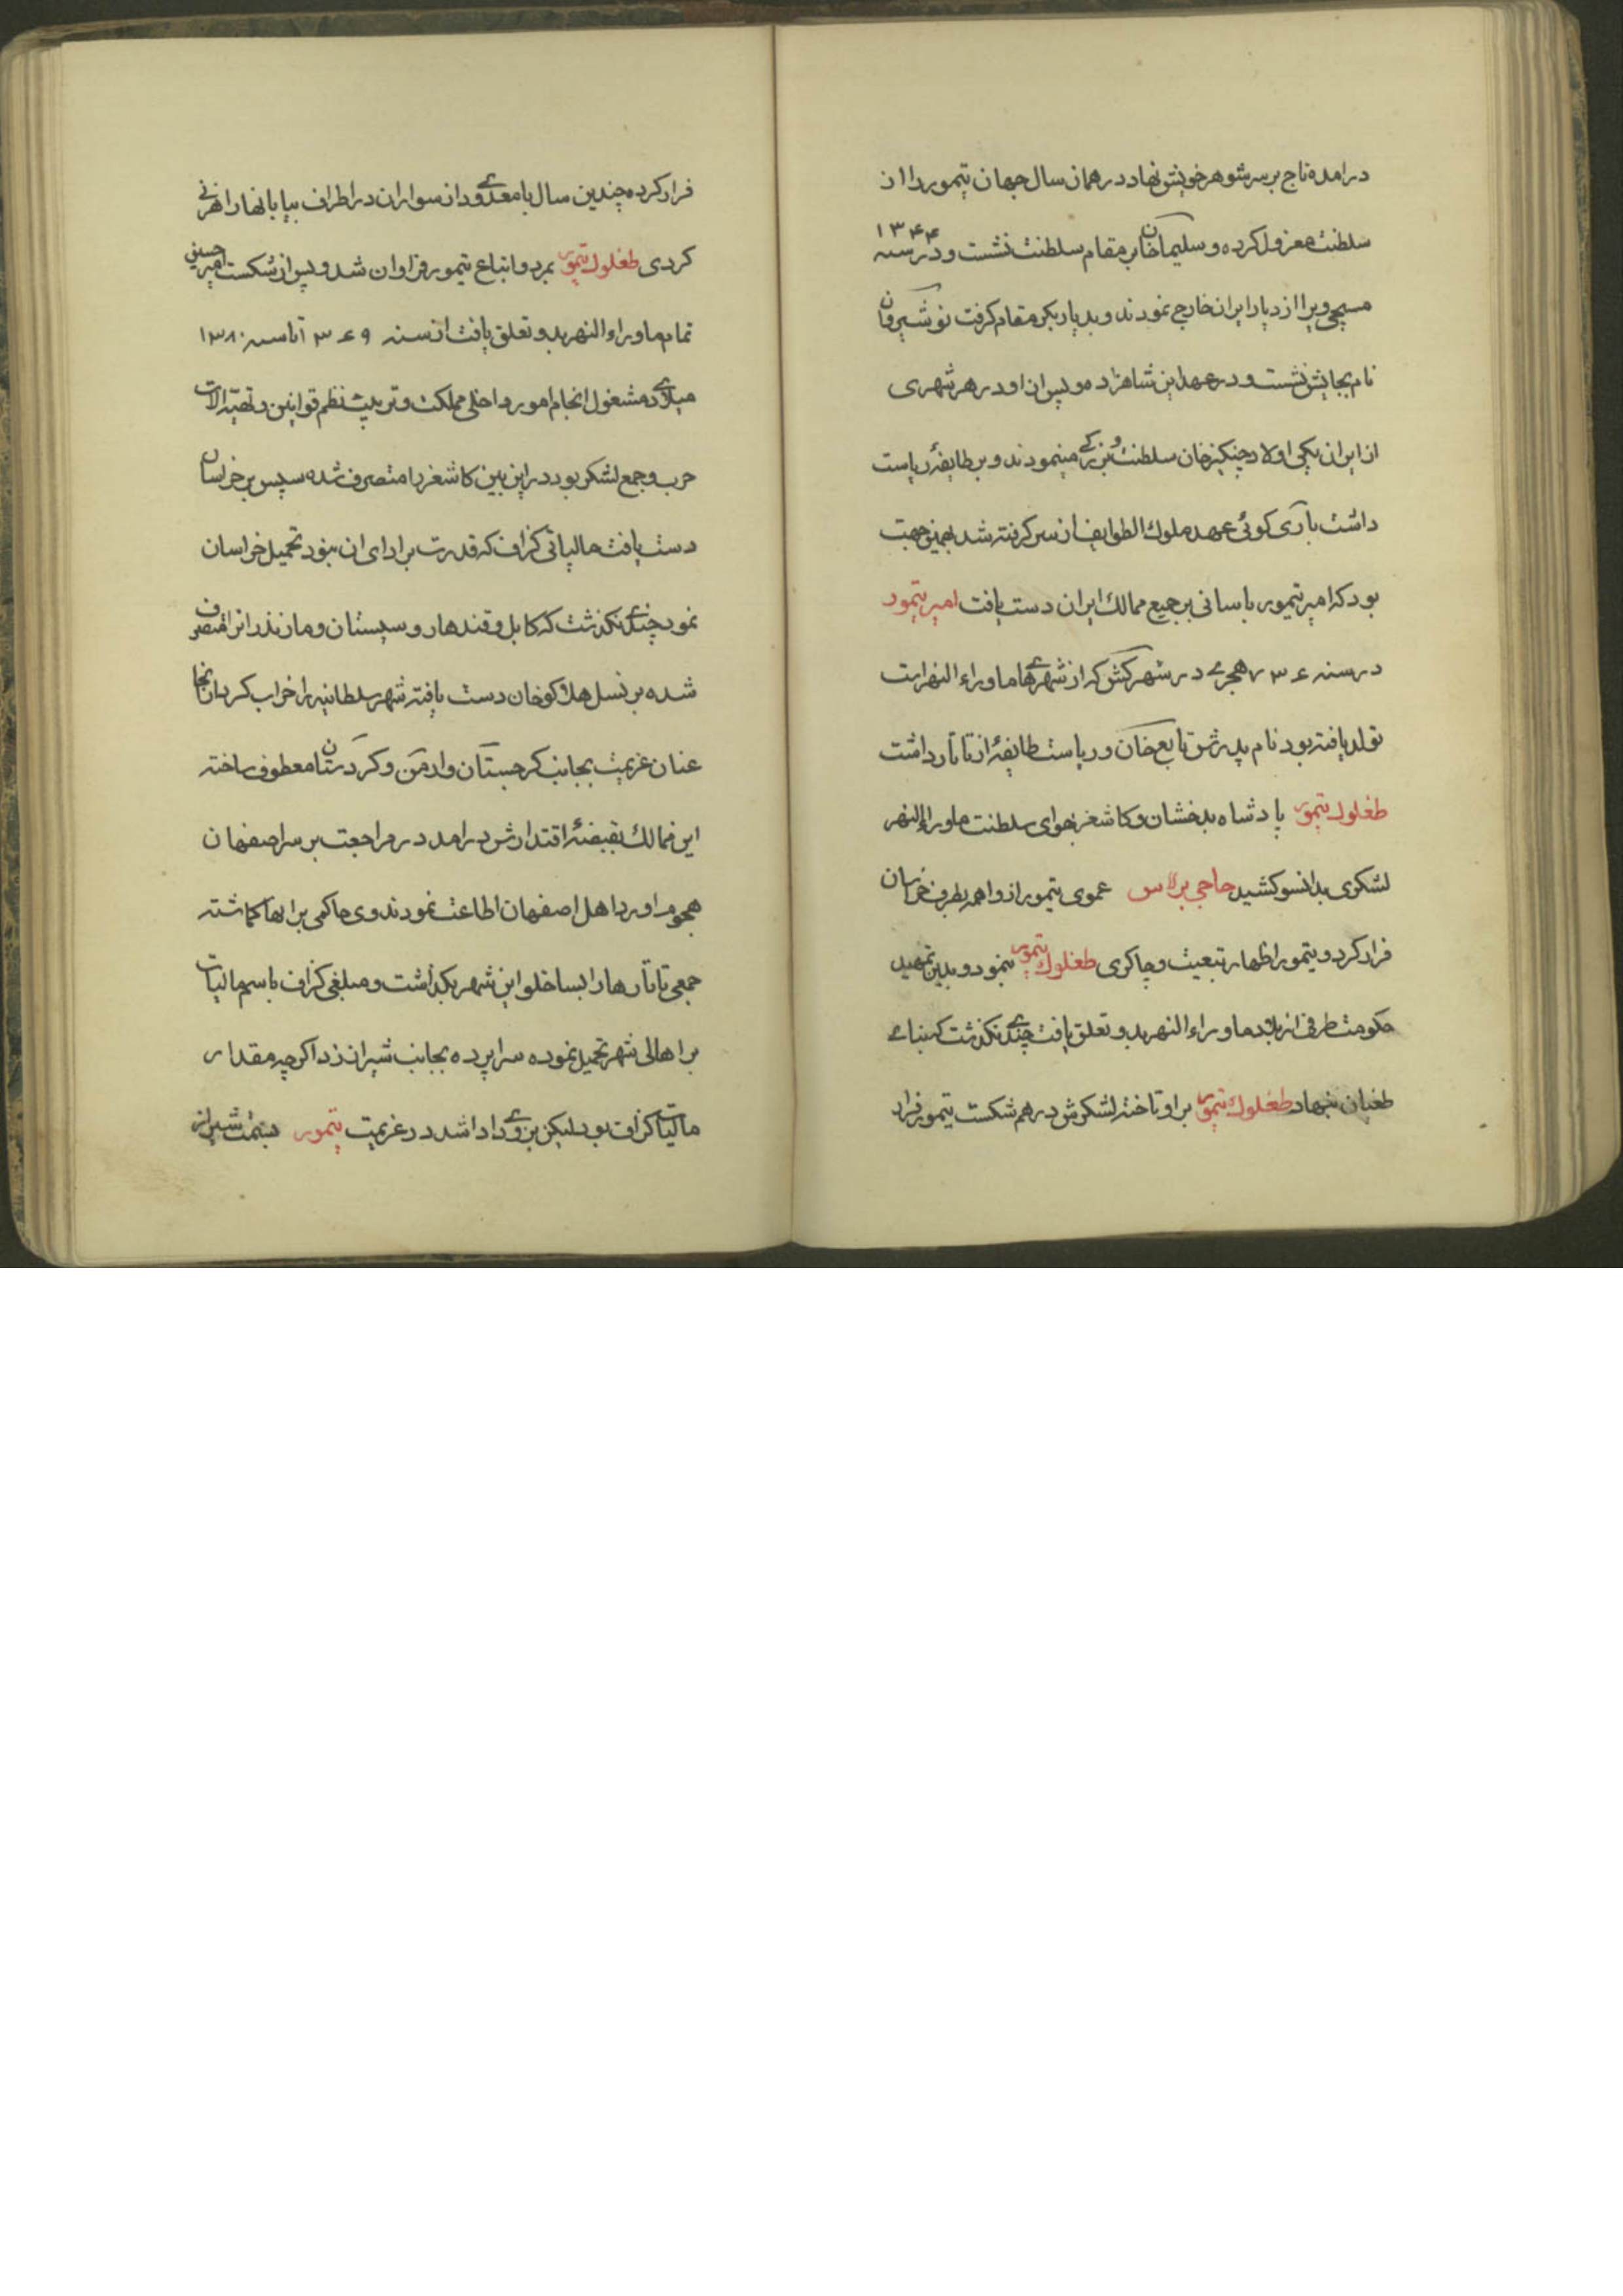 درامده تاج بر سر شوهر خویش نهاد در همان سال جهان تیمور را از
سلطنت معزول کرده و سلیمان خان بر مقام سلطنت نشست و در سنه ۱۳۴۴
مسیحی ویرا از دیار ایران خارج نمودند و بدیار بکر مقام کرفت نوشیروان
نام بجایش نشست و در عهد این شاهزاده و پس از او در هر شهری
از ایران یکی اولاد چنکیز خان سلطنت و بزرکی مینمودند و بر طایفهٔ ریاست
داشت باری کوئی عهد ملوك الطوایف از سر کرفته شد بهمین جهت
بود که امیر تیمور باسانی بر جمیع ممالك ایران دست یافت امیر تیمور
در سنه ۷۳۶ هجری در شهر کش که از شهرهای ماوراء النهر است
تولد یافته بود نام پدرش تایع خان و ریاست طایفهٔ از تاتار داشت
طغلوك تیمور پادشاه بدخشان و کاشغر بهوای سلطنت ماوراء النهر
لشکری بدانسو کشید حاجی برلاس عموی تیمور از واهمه بطرف خراسان
فرار کرد و تیمور اظهار تبعیت و چاکری طغلوك تیمور نمود و بدین تمهید
حکومت طرفی از بلاد ماوراء النهر بدو تعلق یافت چندی نکذشت که بنای
طغیان نهاد طغلوك تیمور بر او تاخته لشکرش در هم شکست تیمور فرار
فرار کرده چندین سال با معدودی از سواران در اطراف بیابانها راهزنی
کردی طغلوك تیمور بمرد و اتباع تیمور فراوان شد و پس از شکست امیر حسین
تمام ماوراء النهر بدو تعلق یافت از سنه ۱۳۶۹ تا سنه ۱۳۸۰
میلادی مشغول انجام امور داخلی مملکت و تربیت نظم قوانین و تهیه الات
حرب و جمع لشکر بود در این بین کاشغر را متصرف شده سپس بر خراسان
دست یافت مالیاتی کزاف که قدرت بر ادای ان نبود تحمیل خراسان
نمود چندی نکذشت که کابل و قندهار و سیستان و مازندران را متصرف
شده بر نسل هلاکو خان دست یافته شهر سلطانیه را خراب کرد از انجا
عنان عزیمت بجانب کرجستان و ارمن و کردستان معطوف ساخته
این ممالك بقبضهٔ اقتدارش درامد در مراجعت بر سر اصفهان
هجوم اورد اهل اصفهان اطاعت نمودند وی حاکمی بر انها کماشته
جمعی تاتارها را بساخلو این شهر بکذاشت و مبلغی کزاف باسم مالیات
بر اهالی شهر تحمیل نموده سراپرده بجانب شیراز زد اکرچه مقدار
مالیات کزاف بود لیکن بزودی ادا شد در عزیمت تیمور بسمت شیراز